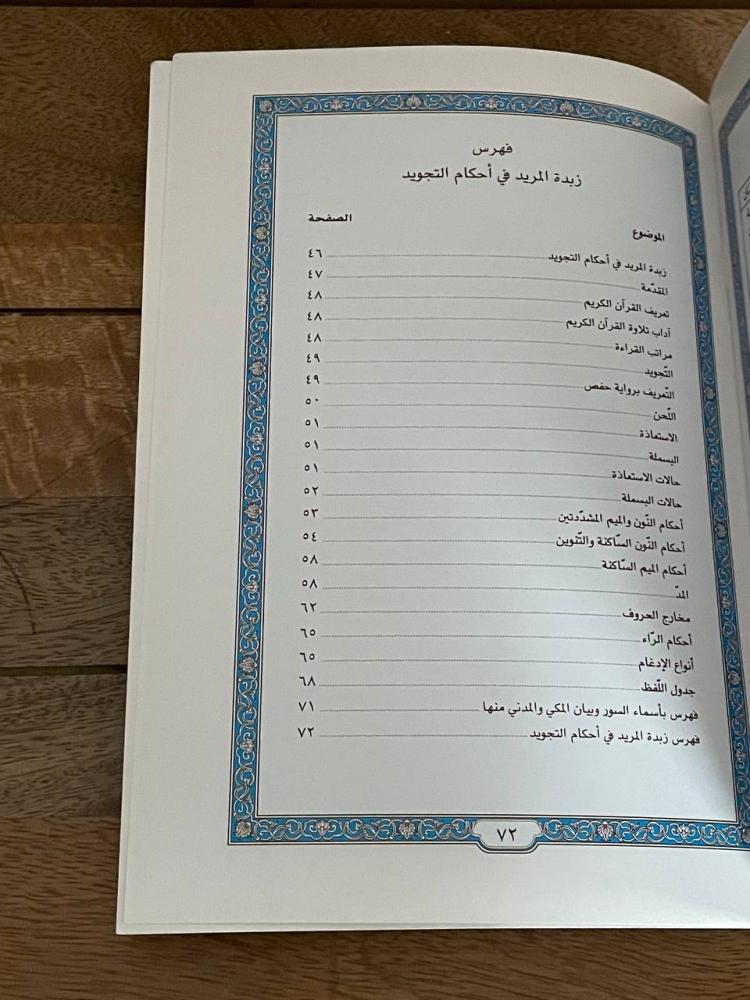 فهرس
زبدة المريد في أحكام التجويد
الموضوع الصفحة
زبدة المريد في أحكام التجويد ٤٦
المقدّمة ٤٧
تعريف القرآن الكريم ٤٨
آداب تلاوة القرآن الكريم ٤٨
مراتب القراءة ٤٨
التّجويد ٤٩
التّعريف برواية حفص ٤٩
اللّحن ٥٠
الاستعاذة ٥١
البسملة ٥١
حالات الاستعاذة ٥١
حالات البسملة ٥٢
أحكام النّون والميم المشدّدتين ٥٣
أحكام النّون السّاكنة والتّنوين ٥٤
أحكام الميم السّاكنة ٥٨
المدّ ٥٨
مخارج الحروف ٦٢
أحكام الرّاء ٦٥
أنواع الإدغام ٦٥
جدول اللّفظ ٦٨
فهرس بأسماء السور وبيان المكي والمدني منها ٧١
فهرس زبدة المريد في أحكام التجويد ٧٢
٧٢